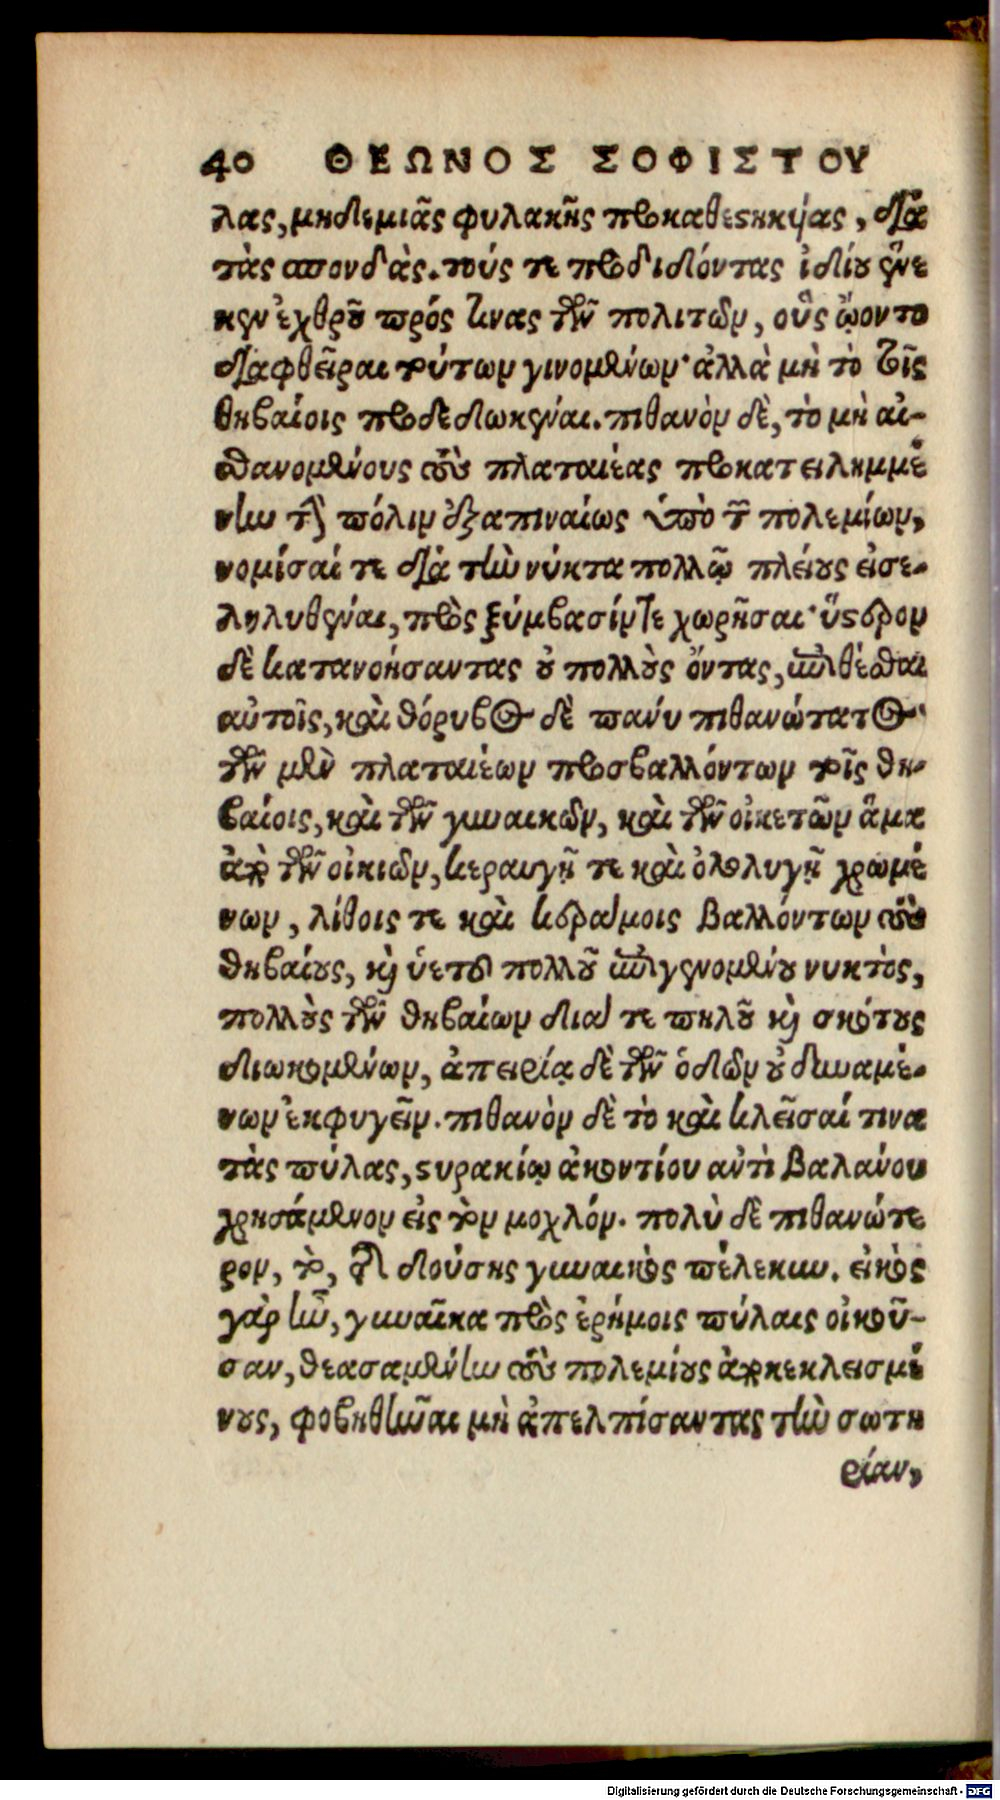 40 ΘΕΩΝΟΣ ΣΟΦΙΣΤΟΥ
λας, μηδεμιᾶς φυλακῆς προκαθεστηκυίας, διὰ
τὰς σπονδὰς. τούς τε προδιδόντας ἰδίου ἕνε
κεν ἐχθροῦ πρός τινας τῶν πολιτῶν, οὓς ᾤοντο
διαφθεῖραι τούτων γινομένων· ἀλλὰ μὴ τὸ τοῖς
θηβαίοις προδεδωκέναι. πιθανὸν δὲ, τὸ μὴ αἰ-
σθανομένους τοὺς πλαταιέας προκατειλημμέ
νην τὴν πόλιν ἐξαπιναίως ὑπὸ τῶν πολεμίων,
νομίσαί τε διὰ τὴν νύκτα πολλῷ πλείους εἰσε-
ληλυθέναι, πρὸς ξύμβασίν τε χωρῆσαι· ὕστερον
δὲ κατανοήσαντας οὐ πολλοὺς ὄντας, ἐπιθέσθαι
αὐτοῖς, καὶ θόρυβος δὲ πάνυ πιθανώτατος·
τῶν μὲν πλαταιέων προσβαλλόντων τοῖς θη-
βαίοις, καὶ τῶν γυναικῶν, καὶ τῶν οἰκετῶν ἅμα
ἀπὸ τῶν οἰκιῶν, κεραυγῇ τε καὶ ὀλολυγῇ χρωμέ
νων, λίθοις τε καὶ κεράμοις βαλλόντων τοὺς
θηβαίους, καὶ ὑετοῦ πολλοῦ ἐπιγενομένου νυκτὸς,
πολλοὺς τῶν θηβαίων διά τε πηλοῦ καὶ σκότους
διωκομένων, ἀπειρίᾳ δὲ τῶν ὁδῶν οὐ δυναμέ-
νων ἐκφυγεῖν. πιθανὸν δὲ τὸ καὶ κλεῖσαί τινα
τὰς πύλας, στυρακίῳ ἀκοντίου ἀντὶ βαλάνου
χρησάμενον εἰς τὸν μοχλόν. πολὺ δὲ πιθανώτε
ρον, τὸ, τῆς δούσης γυναικὸς πέλεκυν. εἰκὸς
γὰρ ἦν, γυναῖκα πρὸς ἐρήμοις πύλαις οἰκοῦ-
σαν, θεασαμένην τοὺς πολεμίους ἀποκεκλεισμέ
νους, φοβηθῆναι μὴ ἀπελπίσαντας τὴν σωτη
ρίαν,
Digitalisierung gefördert durch die Deutsche Forschungsgemeinschaft - DFG